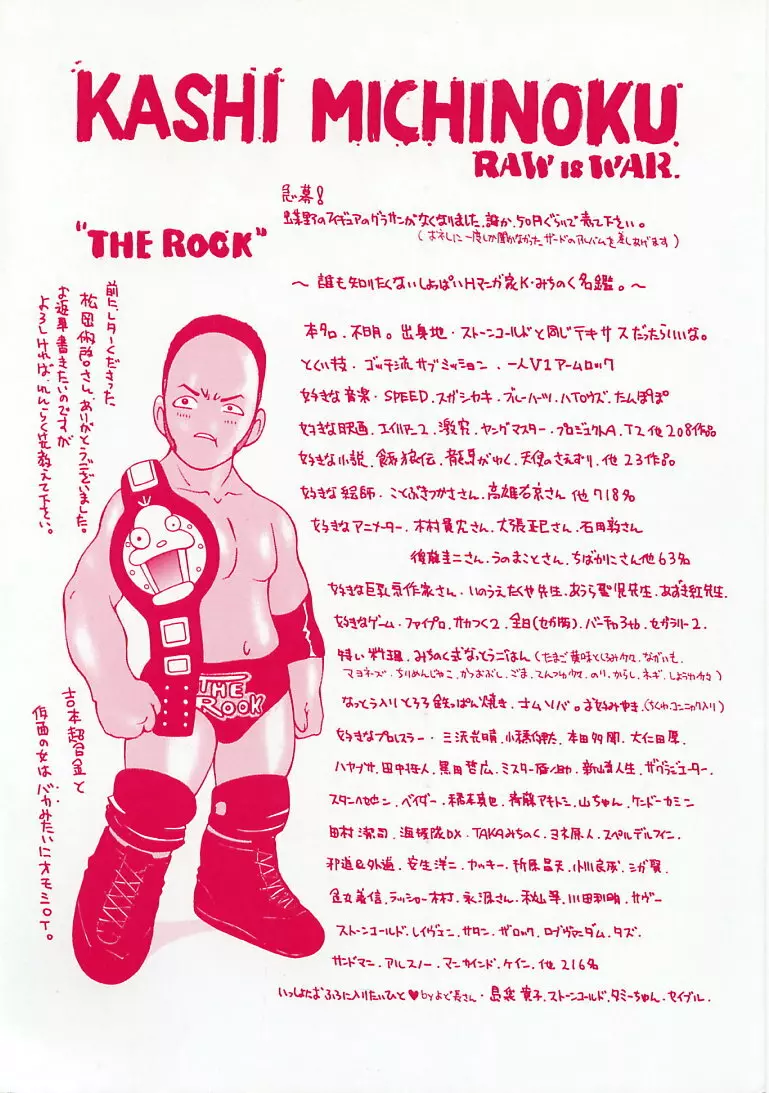 KASHI MICHINOKU
RAW is WAR.
急募!
出葉野のフィギュアのグラサンがなくなりました。誰か、50円ぐらいで売て下さい。
(お礼に一度しか聞かなかったザードのアルバムを差しあげます)
"THE ROCK"
前にレターくださった
松岡 さん、ありがとうございました。
お返事書きたいのですが
よろしければ、れんらく先教えて下さい。
〜誰も知りたくないしょっぱいHマンガ家K・みちのく名鑑。〜
本名。不明。出身地・ストーンコールドと同じテキサスだったらいいな。
とくい技・ゴッチ流サブミッション・一人V1アームロック
好きな音楽・SPEED.スガシカキ.ブルーハーツ.ハTOウズ.たんぽぽ
好きな映画.エイリアン2.激突.ヤングマスター.プロジェクトA.T2他208作品
好きな小説.餓狼伝.龍馬がゆく.天使のさえずり.他23作品
好きな絵師・ことぶきつかささん.高雄右京さん他718名
好きなアニメーター.木村貴宏さん.大張正己さん.石田敦さん
後藤圭二さん.うのまことさん.ちばかにこさん他63名
好きな巨乳系作家さん・いのうえたくや先生.あうら聖児先生.あずき紅先生.
好きなゲーム・ファイプロ.オカつく2.全日(セガ版).バーチャ3.セガラリー2.
特い料理.みちのく式なっとうごはん(たまご黄味とくるみ .ながいも.
マヨネーズ.ちりめんじゃこ.かつおぶし.ごま.てんつゆ .のり.からし.ネギ.しょうゆ )
なっとう入りとろろ鉄っぱん焼き.オムソバ.お好みやき(ちくわ.コンニャク入り)
好きなプロレスラー・三沢光晴.小橋健太.本田多聞.大仁田厚.
ハヤブサ.田中将人.黒田哲広.ミスター雁之助.新山勝人生.ザグラジエーター.
スタンハンセン.ベイダー.橋本真也.斉藤アキトシ.山ちゃん.ケンドーカシン
田村潔司.海援隊DX.TAKAみちのく.ヨネ原人.スペルデルフィン.
邪道&外道.安生洋二.ヤッキー.折原昌夫.小川良成.シガ賢.
金丸義信.ラッシャー木村.永源さん.秋山準.川田利明.サブー
ストーンコールド.レイヴェン.サタン.ザロック.ロブヴァーダム.タズ.
サンドマン.アルスノー.マンカインド.ケイン.他216名
いっしょにおふろに入りたいひと♥byよど長さん・島袋寛子.ストーンコールド.タミーちゃん.セイブル.
THE
ROOK
吉本超合金と
仮面の女は
バカみたいに
オモシロイ。